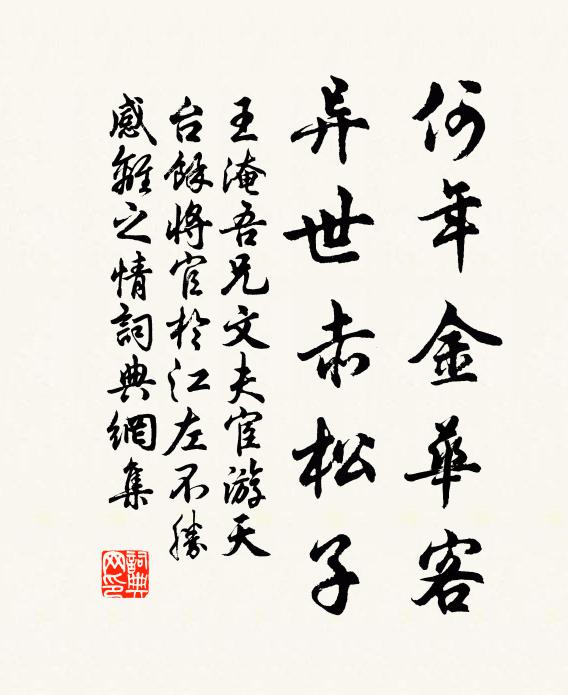 何年金華客
异世赤松子
王淹吾兄文夫宦游天
台餘將官於江左不勝
感離之情詞典網集
詞典网印